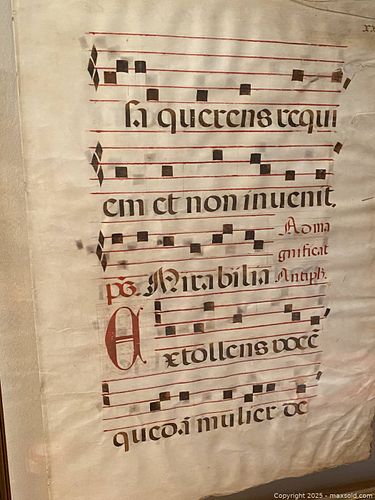 sa querens requi
em et non inuenit.
Ad ma
gnificat
ps. Mirabilia Antiph.
Extollens vocē
quedā mulier de
Copyright 2025 - maxsold.com